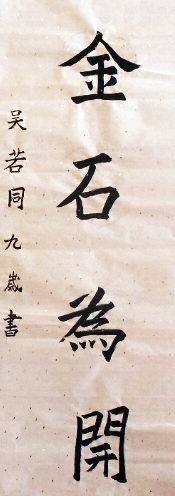 金石為開
吳若同九歲書